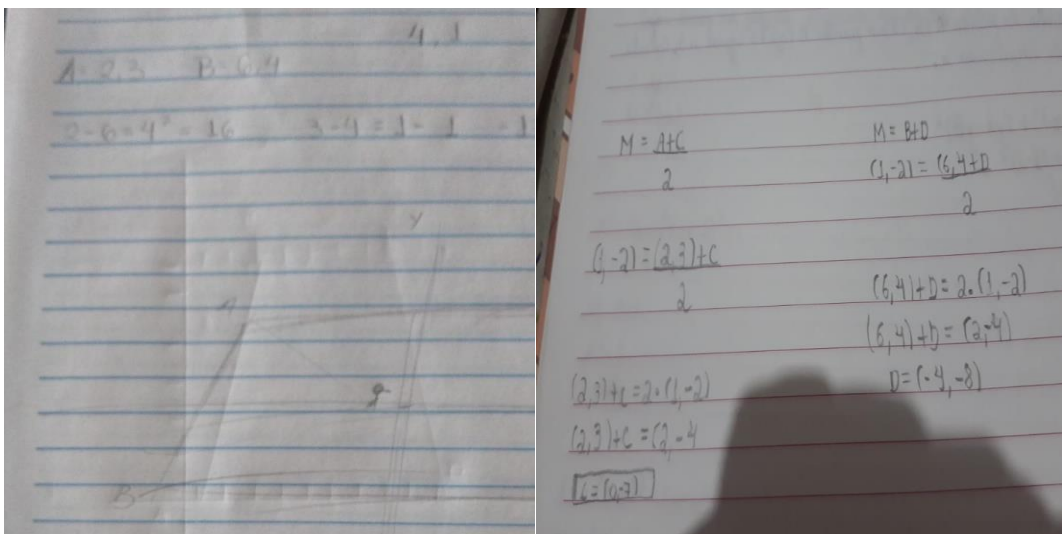 4,1
A=2,3 B=6,4
2-6=4² = 16 3-4=1= 1 =1
Y
A
B
M = A+C
2
(1,-2) = (2,3)+C
2
(2,3)+C=2•(1,-2)
(2,3)+C=(2,-4
C=(0,-7)
M=B+D
(1,-2)=(6,4+D
2
(6,4)+D=2•(1,-2)
(6,4)+D=(2,-4)
D=(-4,-8)